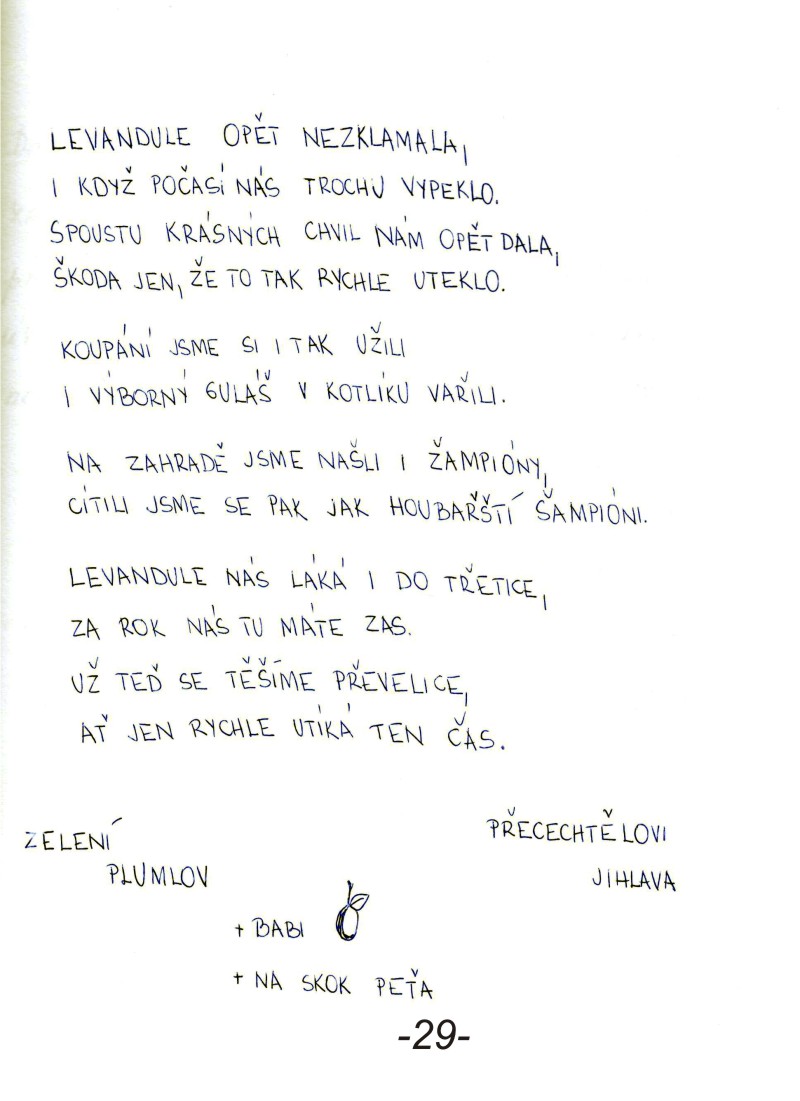 LEVANDULE OPĚT NEZKLAMALA,
I KDYŽ POČASÍ NÁS TROCHU VYPEKLO.
SPOUSTU KRÁSNÝCH CHVIL NÁM OPĚT DALA,
ŠKODA JEN, ŽE TO TAK RYCHLE UTEKLO.
KOUPÁNÍ JSME SI I TAK UŽILI
I VÝBORNÝ GULÁŠ V KOTLÍKU VAŘILI.
NA ZAHRADĚ JSME NAŠLI I ŽAMPIÓNY,
CÍTILI JSME SE PAK JAK HOUBAŘŠTÍ ŠAMPIÓNI.
LEVANDULE NÁS LÁKÁ I DO TŘETICE,
ZA ROK NÁS TU MÁTE ZAS.
UŽ TEĎ SE TĚŠÍME PŘEVELICE,
AŤ JEN RYCHLE UTÍKÁ TEN ČAS.
ZELENÍ
PLUMLOV
PŘECECHTĚLOVI
JIHLAVA
+ BABI
+ NA SKOK PEŤA
-29-